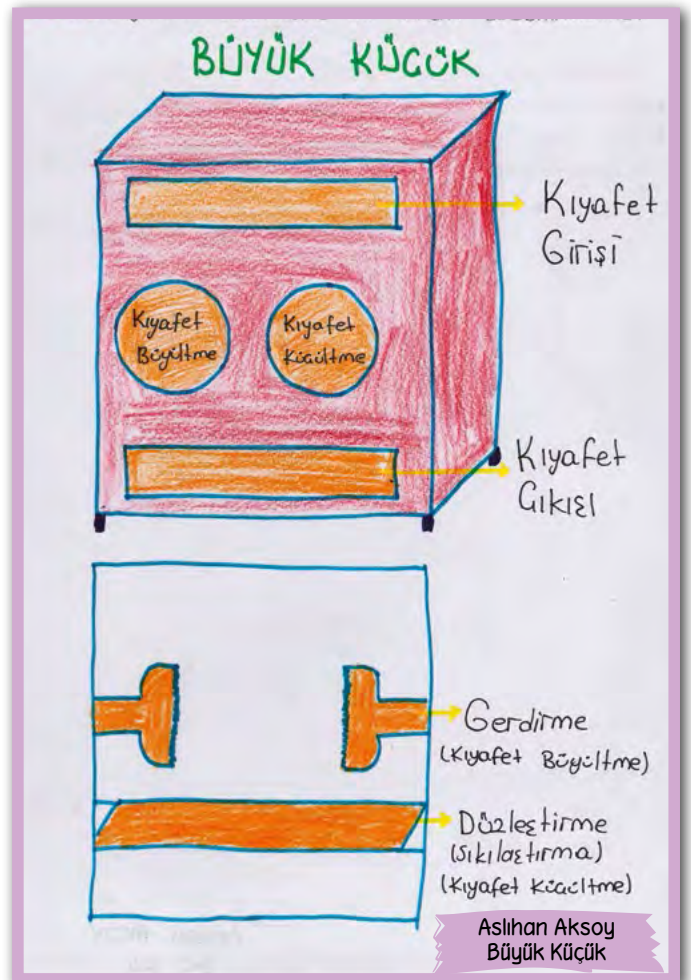 BÜYÜK KÜÇÜK
Kıyafet
Girişi
Kıyafet
Büyültme
Kıyafet
Küçültme
Kıyafet
Çıkışı
Gerdirme
(Kıyafet Büyültme)
Düzleştirme
(Sıkılaştırma)
(Kıyafet Küçültme)
Aslıhan Aksoy
Büyük Küçük